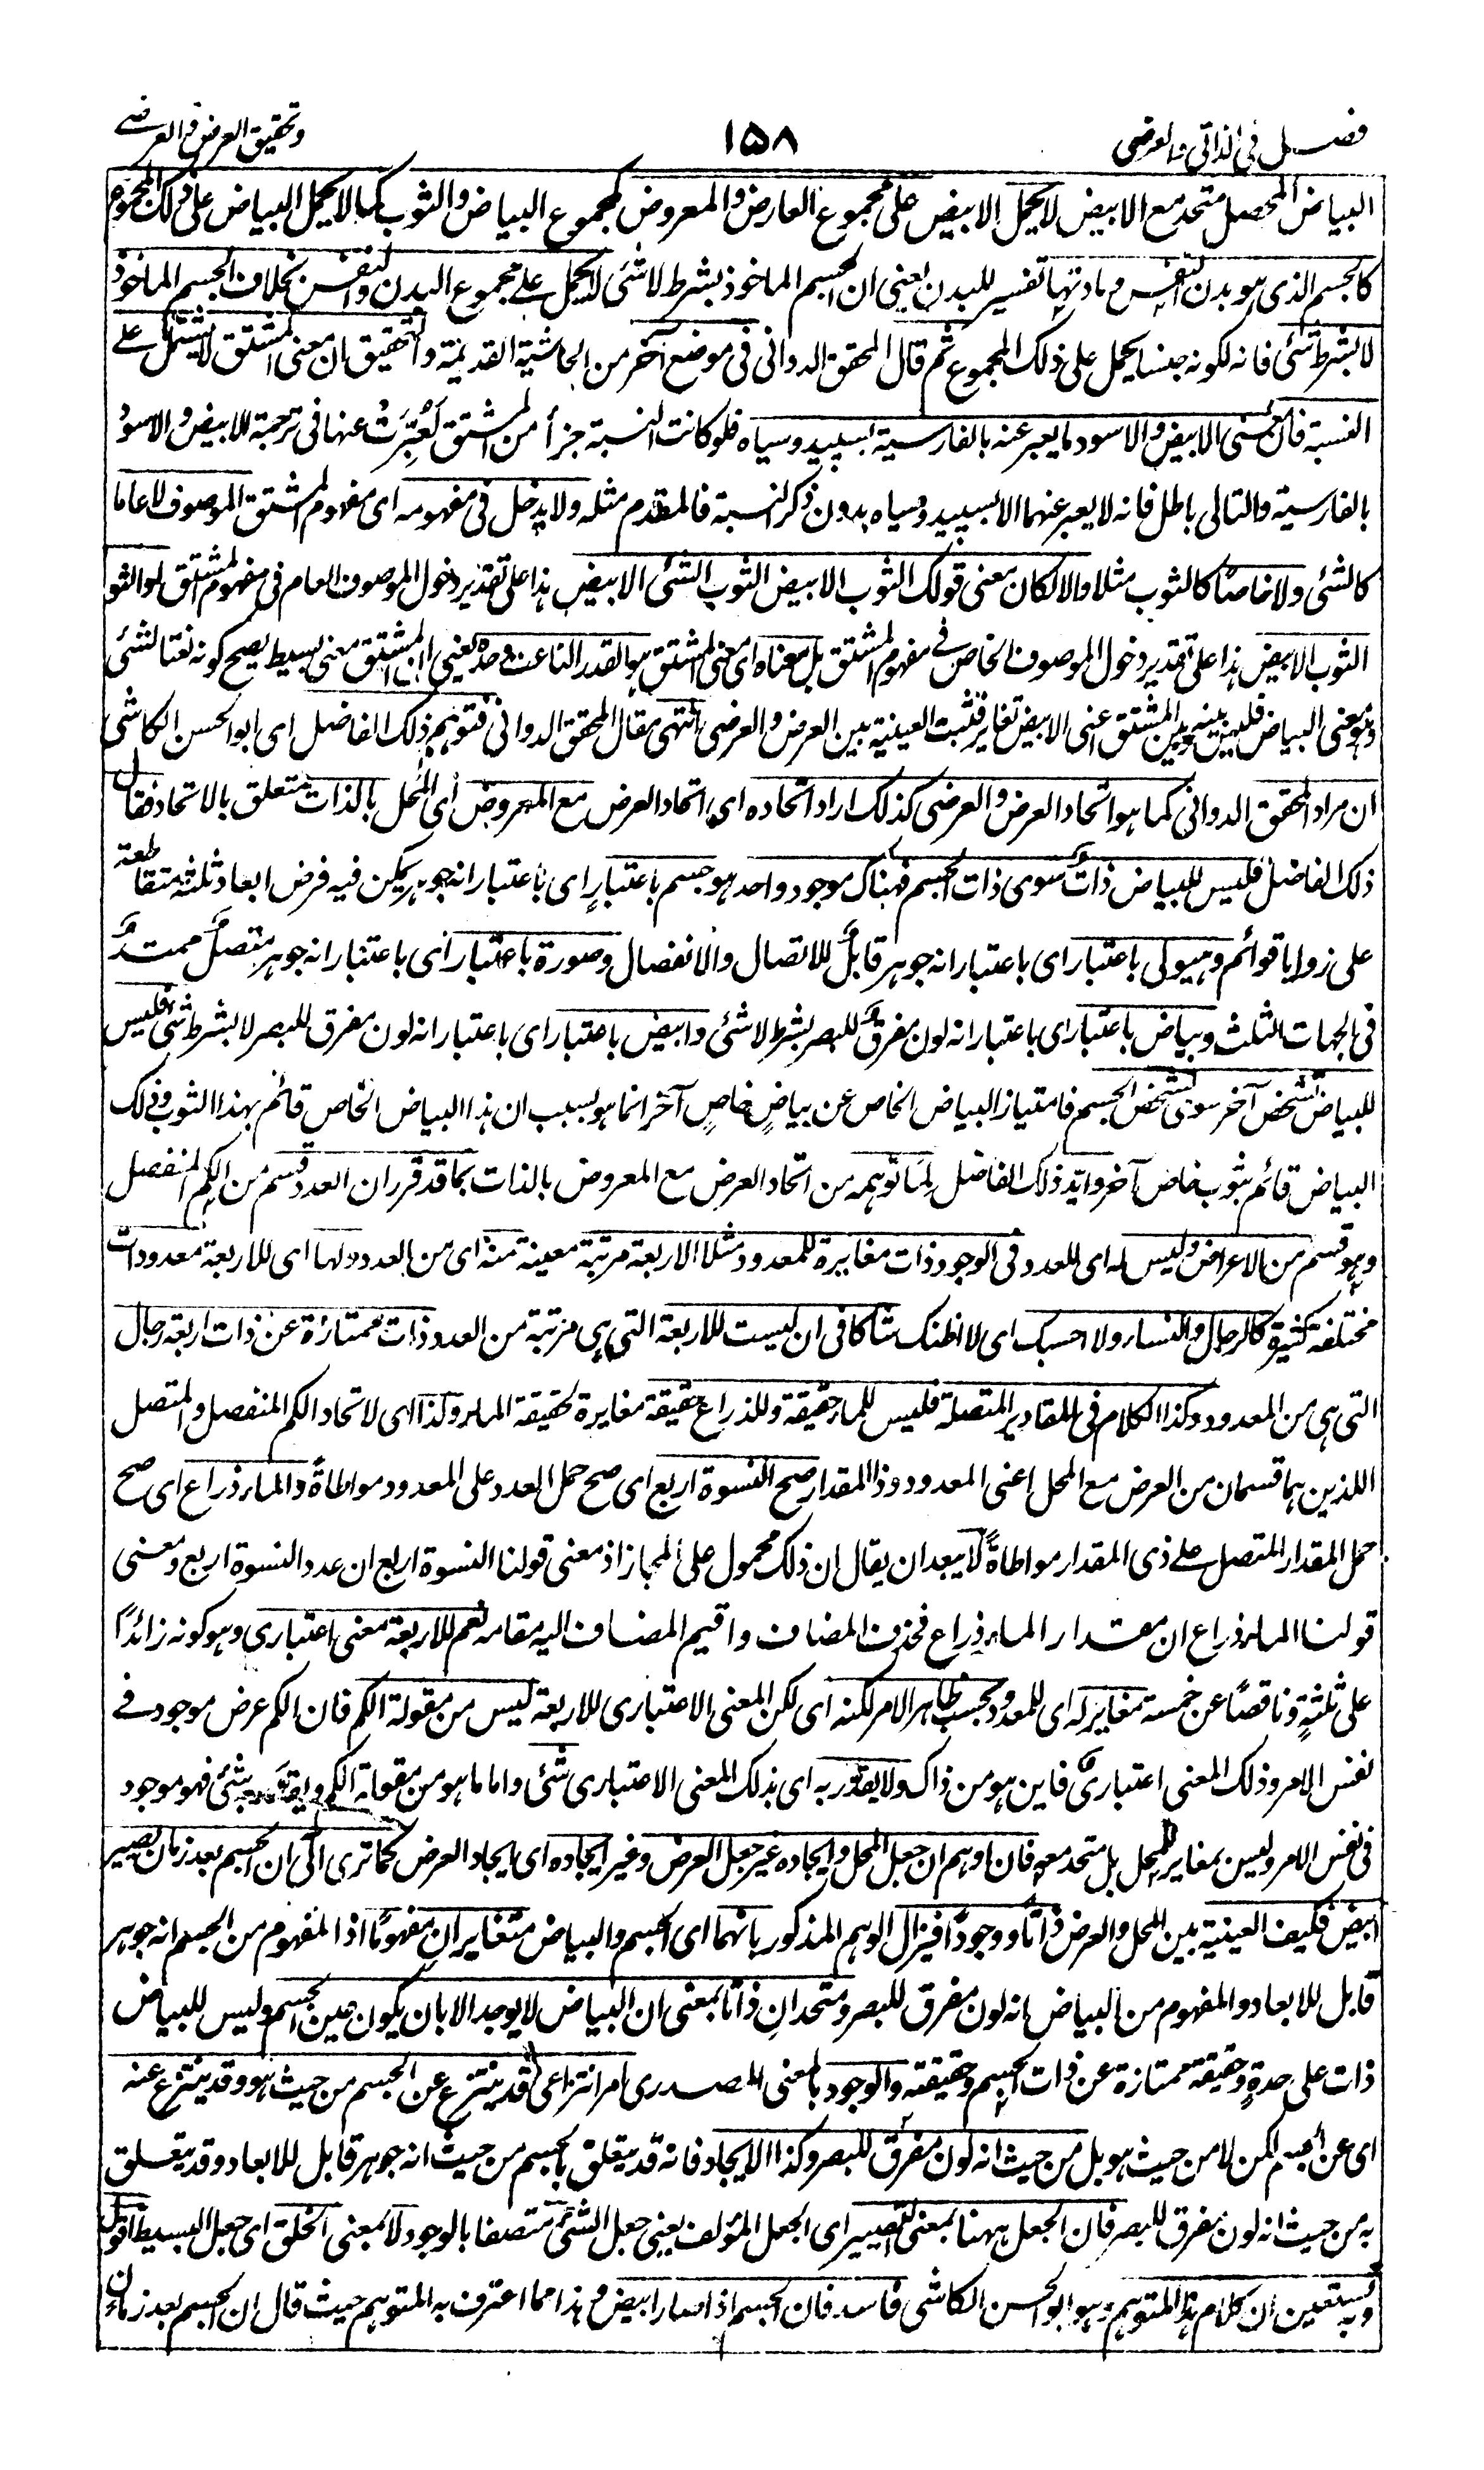 فصل في الذاتي والعرضي
١٥٨
وتحقيق العرض والعرضي
البياض المحصل متحد مع الابيض لا يحمل الابيض على مجموع العارض والمعروض كمجموع البياض والثوب كما لا يحمل البياض على ذلك المجموع
كالجسم الذى هو بدن النفس ومادتها تفسير للبدن يعنى ان الجسم الماخوذ بشرط لا شئ لا يحمل على مجموع البدن والنفس بخلاف الجسم الماخوذ
لا بشرط شئ فانه لكونه جنسا يحمل على ذلك المجموع ثم قال المحقق الدوانى فى موضع آخر من الحاشية القديمة والتحقيق ان معنى المشتق لا يشتمل على
النسبة فان معنى الابيض والاسود ما يعبر عنه بالفارسية بسپيد وسياه فلو كانت النسبة جزأ من المشتق لَعُبِّرَتْ عنها فى ترجمة الابيض والاسود
بالفارسية والتالى باطل فانه لا يعبر عنهما الا بسپيد وسياه بدون ذكر النسبة فالمقدم مثله ولا يدخل فى مفهومه اى مفهوم المشتق الموصوف لا عاما
كالشئ ولا خاصًا كالثوب مثلا والا لكان معنى قولك الثوب الابيض الثوب الشئ الابيض هذا على تقدير دخول الموصوف العام فى مفهوم المشتق او الثوب
الثوب الابيض هذا على تقدير دخول الموصوف الخاص فى مفهوم المشتق بل معناه اى معنى المشتق هو القدر الناعت وحده يعنى ان المشتق معنى بسيط يصح كونه نعتا لشئ
وهو معنى البياض فليس بينه وبين المشتق اعنى الابيض تغاير فثبت العينية بين العرض والعرضى انتهى مقال المحقق الدوانى فتوهم ذلك الفاضل اى ابو الحسن الكاشى
ان مراد المحقق الدوانى كما هو اتحاد العرض والعرضى كذلك اراد اتحاده اى اتحاد العرض مع المعروض اى المحل بالذات متعلق بالاتحاد فقال
ذلك الفاضل فليس للبياض ذاتٌ سوى ذات الجسم فهناك موجود واحد هو جسم باعتبارٍ اى باعتبار انه جوهر يمكن فيه فرض ابعاد ثلثة متقاطعة
على زوايا قوائم وهيولى باعتبار اى باعتبار انه جوهر قابلٌ للاتصال والانفصال وصورة باعتبار اى باعتبار انه جوهر متصلٌ ممتدٌ
فى الجهات الثلث وبياض باعتبار اى باعتبار انه لون مفرقٌ للبصر بشرط لا شئ وابيض باعتبار اى باعتبار انه لون مفرق للبصر لا بشرط شئ فليس
للبياض تشخص آخر سوى تشخص الجسم فامتياز البياض الخاص عن بياضٍ خاصٍ آخر انما هو بسبب ان هذا البياض الخاص قائم بهذا الثوب وذلك
البياض قائم بثوب خاص آخر وايّد ذلك الفاضل لِمَا توهمه من اتحاد العرض مع المعروض بالذات بما قد قرر ان العدد قسم من الكم المنفصل
وهو قسم من الاعراض وليس له اى للعدد فى الوجود ذات مغايرة للمعدود مثلا الاربعة مرتبة معينة منه اى من العدد ولها اى للاربعة معدودات
مختلفة كثيرة كالرجال والنساء ولا احسبك اى لا اظنك شاكا فى ان ليست للاربعة التى هى مرتبة من العدد ذات ممتازة عن ذات اربعة رجال
التى هى من المعدود وكذا الكلام فى المقادير المتصلة فليس للماء حقيقة وللذراع حقيقة مغايرة لحقيقة الماء وكذا اى لاتحاد الكم المنفصل والمتصل
اللذين هما قسمان من العرض مع المحل اعنى المعدود وذا المقدار صح النسوة اربع اى صح حمل العدد على المعدود مواطاةً والماء ذراع اى صح
حمل المقدار المتصل على ذى المقدار مواطاةً لا يبعد ان يقال ان ذلك محمول على المجاز اذ معنى قولنا النسوة اربع ان عدد النسوة اربع ومعنى
قولنا الماء ذراع ان مقدار الماء ذراع فحذف المضاف واقيم المضاف اليه مقامه نعم للاربعة معنى اعتبارى وهو كونه زائدًا
على ثلثةٍ وناقصًا عن خمسة مغاير له اى للمعدود بحسب ظاهر الامر لكنه اى لكن المعنى الاعتبارى للاربعة ليس من مقولة الكم فان الكم عرض موجود فى
نفس الامر وذلك المعنى اعتبارىٌ فاين هو من ذاك ولا يقدر به اى بذلك المعنى الاعتبارى شئ واما ما هو من مقولة الكم ويقدر به شئ فهو موجود
فى نفس الامر وليس بمغاير للمحل بل متحد معه فان اوهم ان جعل المحل وايجاده غير جعل العرض وغير ايجاده اى ايجاد العرض كما ترى الى ان الجسم بعد زمان يصير
ابيض فكيف العينية بين المحل والعرض ذاتًا ووجودًا فيزال الوهم المذكور بانهما اى الجسم والبياض متغايرانِ مفهومًا اذ المفهوم من الجسم انه جوهر
قابل للابعاد والمفهوم من البياض انه لون مفرق للبصر ومتحدانِ ذاتًا بمعنى ان البياض لا يوجد الا بان يكون عين الجسم وليس للبياض
ذات على حدةٍ وحقيقة ممتازة عن ذات الجسم وحقيقته والوجود بالمعنى المصدرى امر انتزاعى قد ينتزع عن الجسم من حيث هو وقد ينتزع عنه
اى عن الجسم لكن لا من حيث هو بل من حيث انه لون مفرق للبصر وكذا الايجاد فانه قد يتعلق بالجسم من حيث انه جوهر قابل للابعاد وقد يتعلق
به من حيث انه لون مفرق للبصر فان الجعل ههنا بمعنى التصيير اى الجعل المؤلف يعنى جعل الشئ متصفا بالوجود لا بمعنى الخلق اى جعل البسيط اقول
وبه نستعين ان كلام هذا المتوهم وهو ابو الحسن الكاشى فاسد فان الجسم اذا صار ابيض وهذا مما اعترف به المتوهم حيث قال ان الجسم بعد زمان